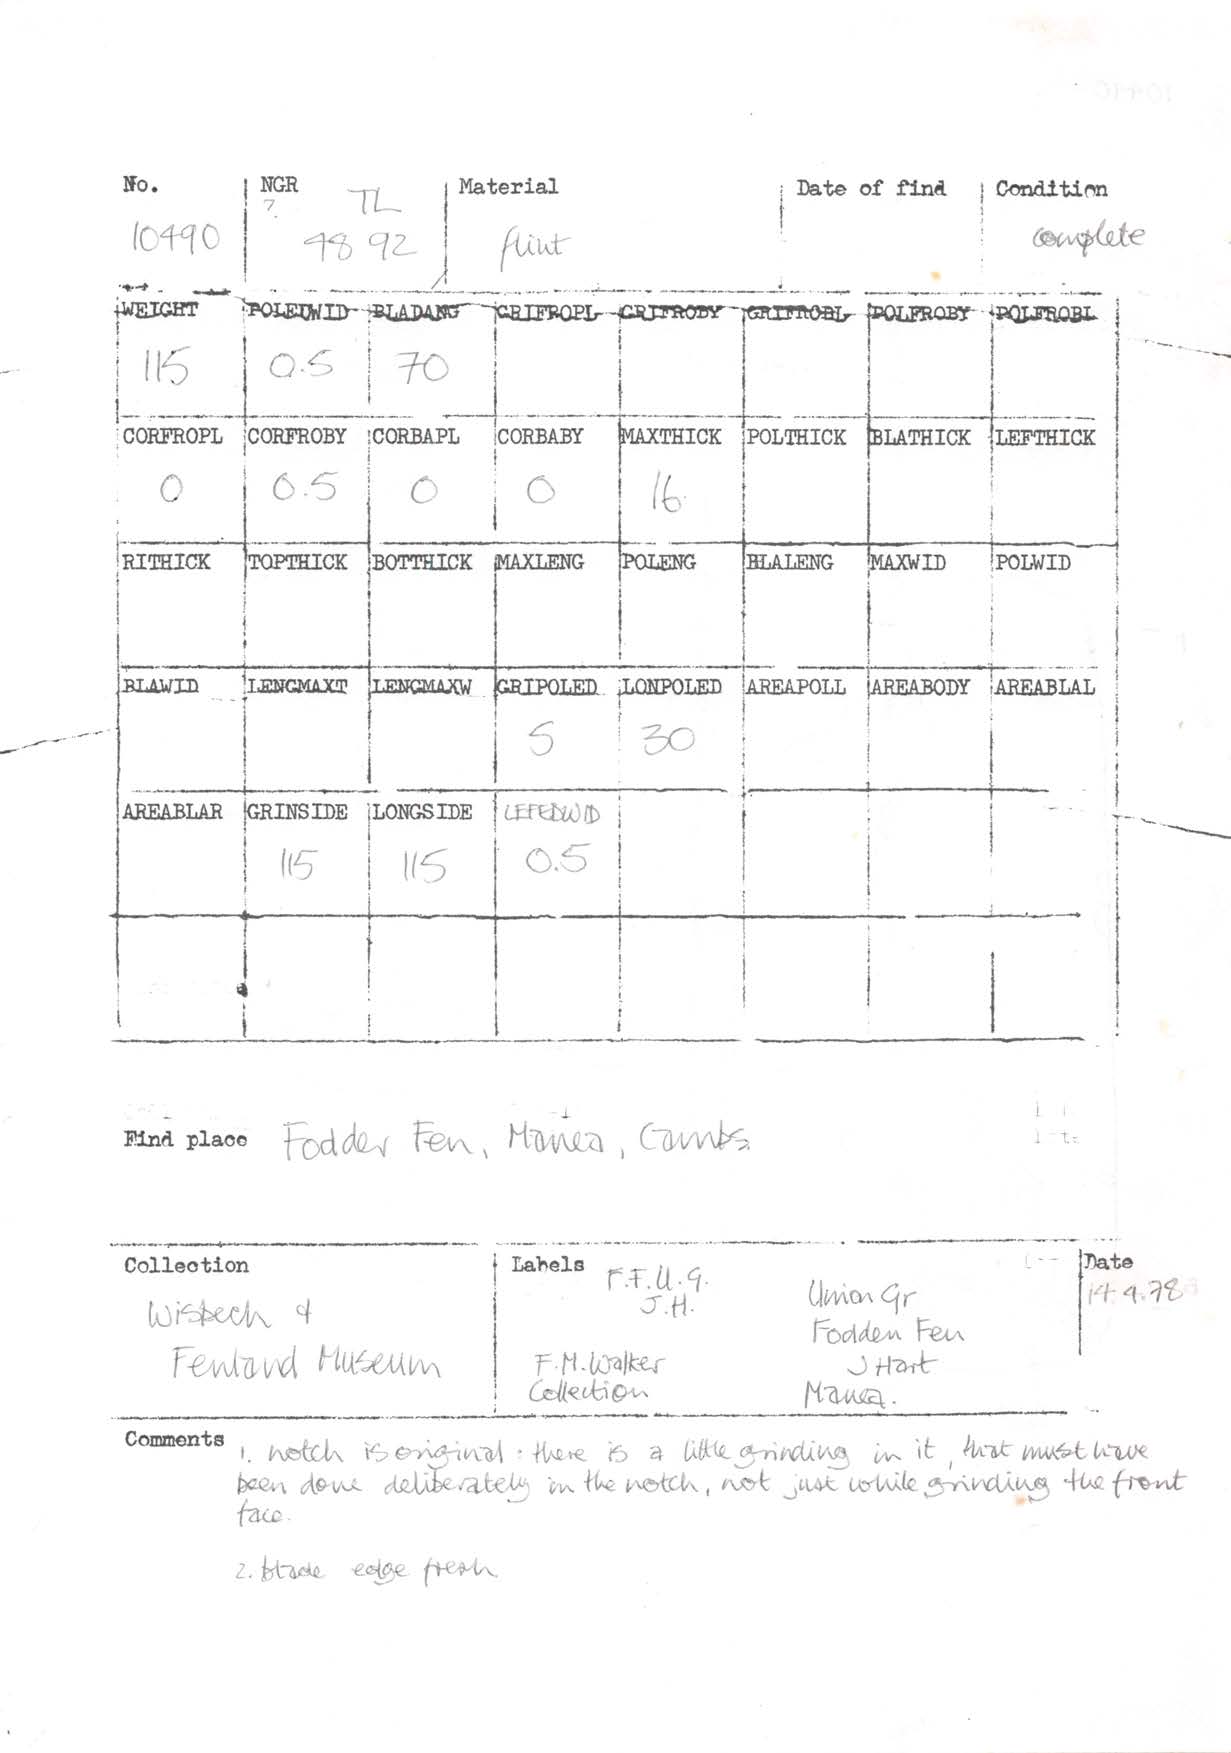 No. NGR Material Date of find Condition
? TL
10490 48 92 flint complete
WEIGHT POLEDWID BLADANG GRIFROPL GRIFROBY GRIFROBL POLFROBY POLFROBL
115 0.5 70
CORFROPL CORFROBY CORBAPL CORBABY MAXTHICK POLTHICK BLATHICK LEFTHICK
0 0.5 0 0 16
RITHICK TOPTHICK BOTTHICK MAXLENG POLENG BLALENG MAXWID POLWID
BLAWID LENGMAXT LENGMAXW GRIPOLED LONPOLED AREAPOLL AREABODY AREABLAL
5 30
AREABLAR GRINSIDE LONGSIDE LEFEDWID
115 115 0.5
Find place Fodder Fen, Manea, Cambs.
Collection
Wisbech &
Fenland Museum
Labels
F.F.U.G.
J.H.
F.M. Walker
Collection
Union Gr
Fodden Fen
J Hart
Manea.
Date
14.4.78
Comments 1. notch is original : there is a little grinding in it, that must have
been done deliberately in the notch, not just while grinding the front
face.
2. blade edge fresh.